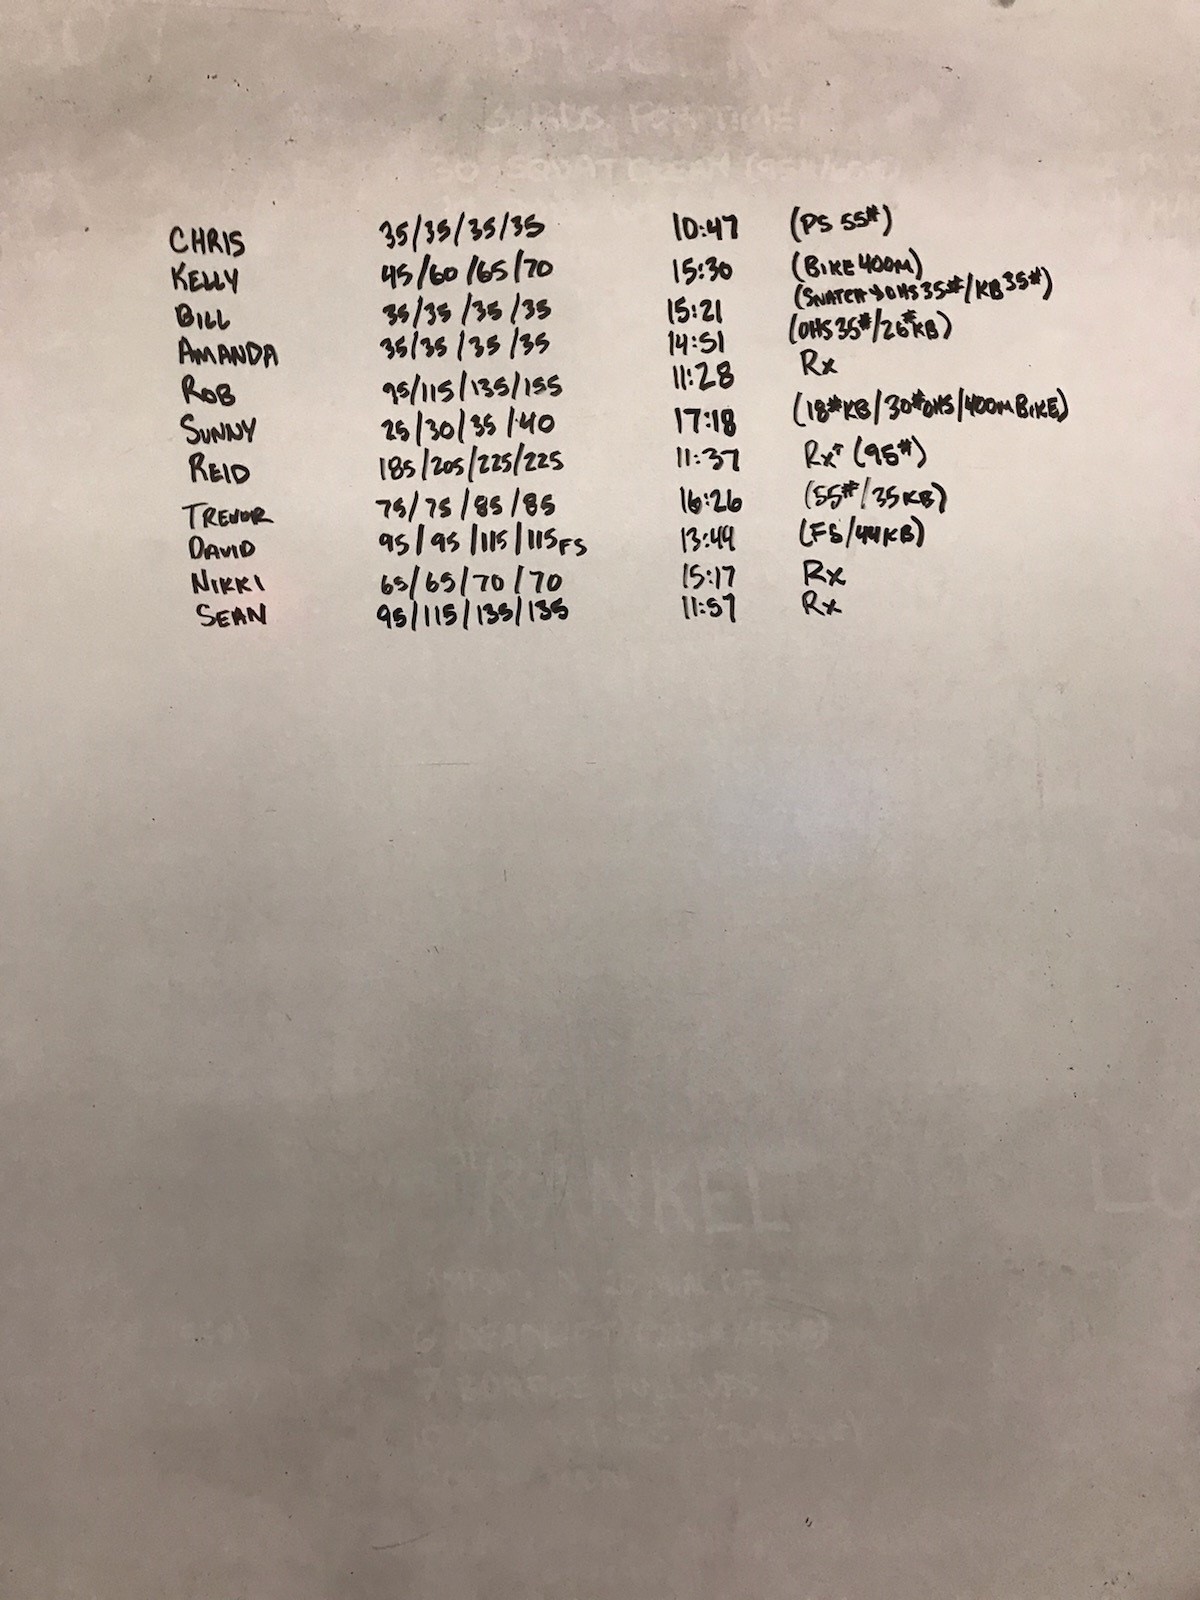 CHRIS 35/35/35/35 10:47 (PS 55#)
KELLY 45/60/65/70 15:30 (BIKE 400M)
BILL 35/35/35/35 15:21 (SNATCH & OHS 35#/KB 35#)
AMANDA 35/35/35/35 14:51 (OHS 35#/26#KB)
ROB 95/115/135/155 11:28 Rx
SUNNY 25/30/35/40 17:18 (18#KB/30#OHS/400M BIKE)
REID 185/205/225/225 11:37 Rx+ (95#)
TREVOR 75/75/85/85 16:26 (55#/35KB)
DAVID 95/95/115/115FS 13:49 (FS/44KB)
NIKKI 65/65/70/70 15:17 Rx
SEAN 95/115/135/135 11:57 Rx